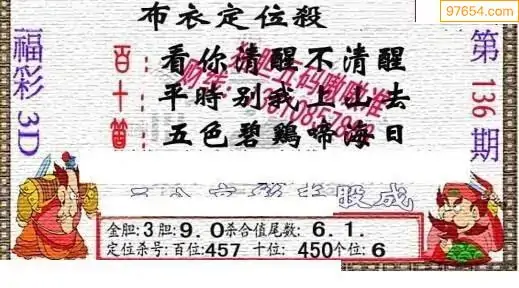 97654.com
布衣定位殺
福彩3D
第136期
百: 看你清醒不清醒
十: 平時別我上山去
個: 五色碧鷄啼海日
金胆:3胆:9.0杀合值尾数: 6.1.
定位杀号:百位:457 十位: 450个位:6